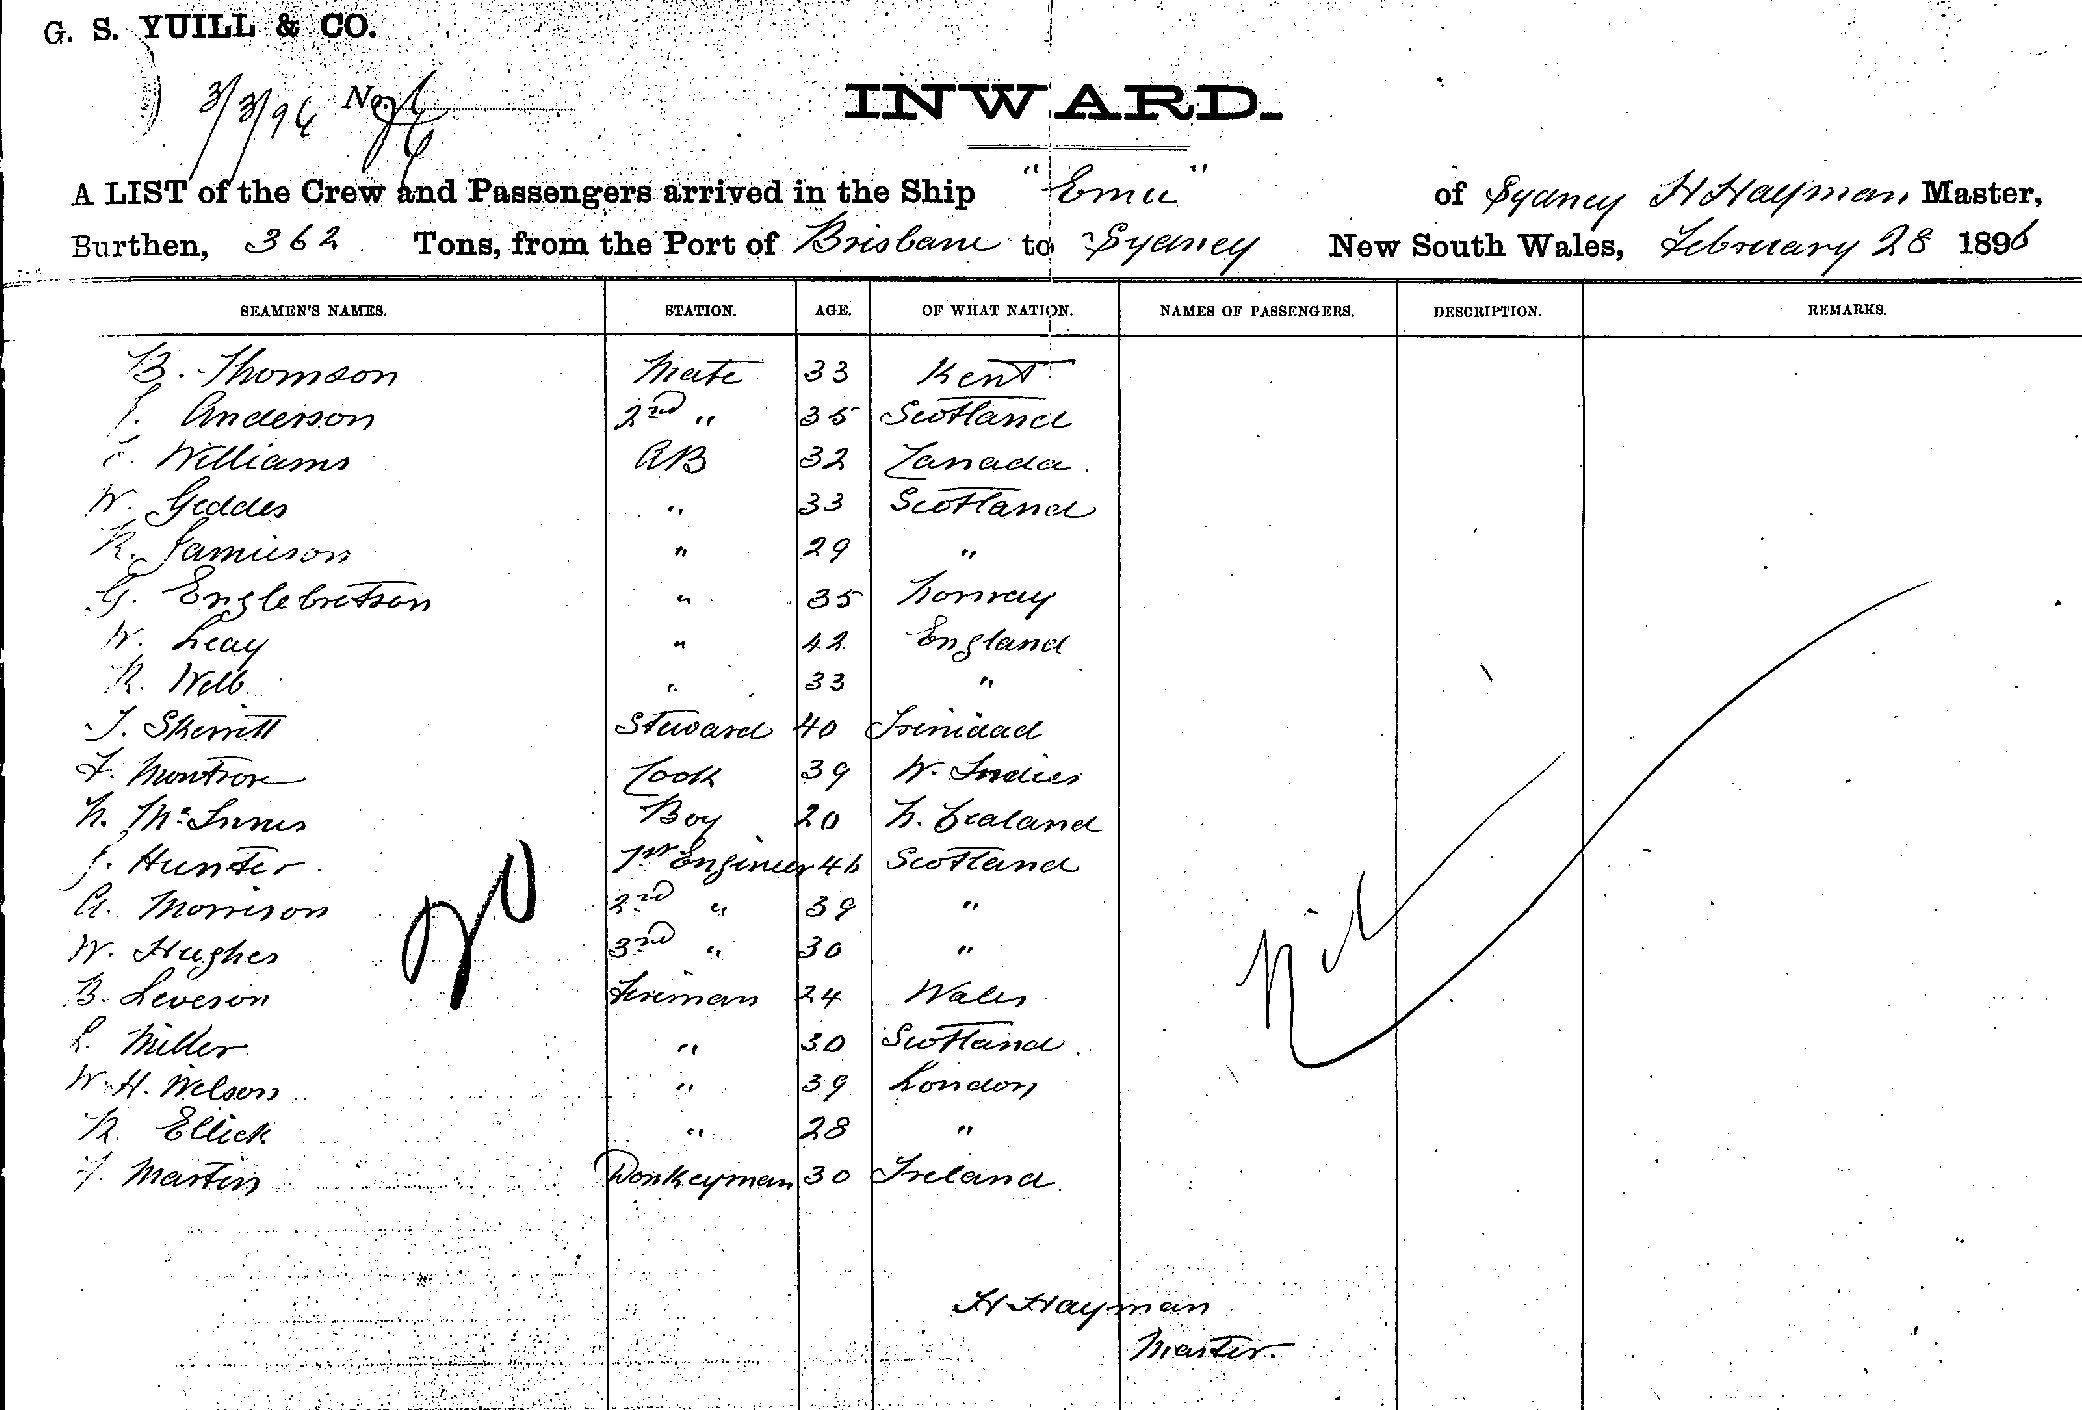 G. S. YUILL & CO.
3/3/96 No
INWARD.
A LIST of the Crew and Passengers arrived in the Ship "Emu" of Sydney H Hayman Master,
Burthen, 362 Tons, from the Port of Brisbane to Sydney New South Wales, February 28 1896
SEAMEN'S NAMES. STATION. AGE. OF WHAT NATION. NAMES OF PASSENGERS. DESCRIPTION. REMARKS.
B. Thomson Mate 33 Kent
J. Anderson 2nd " 35 Scotland
Williams AB 32 Canada.
W. Geddes " 33 Scotland
R. Jamieson " 29 "
G. Englebretson " 35 Norway
W. Leay " 42 England
R. Webb " 33 "
J. Skerritt Steward 40 Trinidad
F. Montrose Cook 39 W. Indies
N. McInnes Boy 20 N. Zealand
J. Hunter 1st Engineer 46 Scotland
A. Morrison 2nd " 39 "
W. Hughes 3rd " 30 "
B. Leveson Fireman 24 Wales
L. Miller " 30 Scotland.
W. H. Wilson " 39 London
R. Ellick " 28 "
Martin Donkeyman 30 Ireland.
20
Nil
H Hayman
Master.